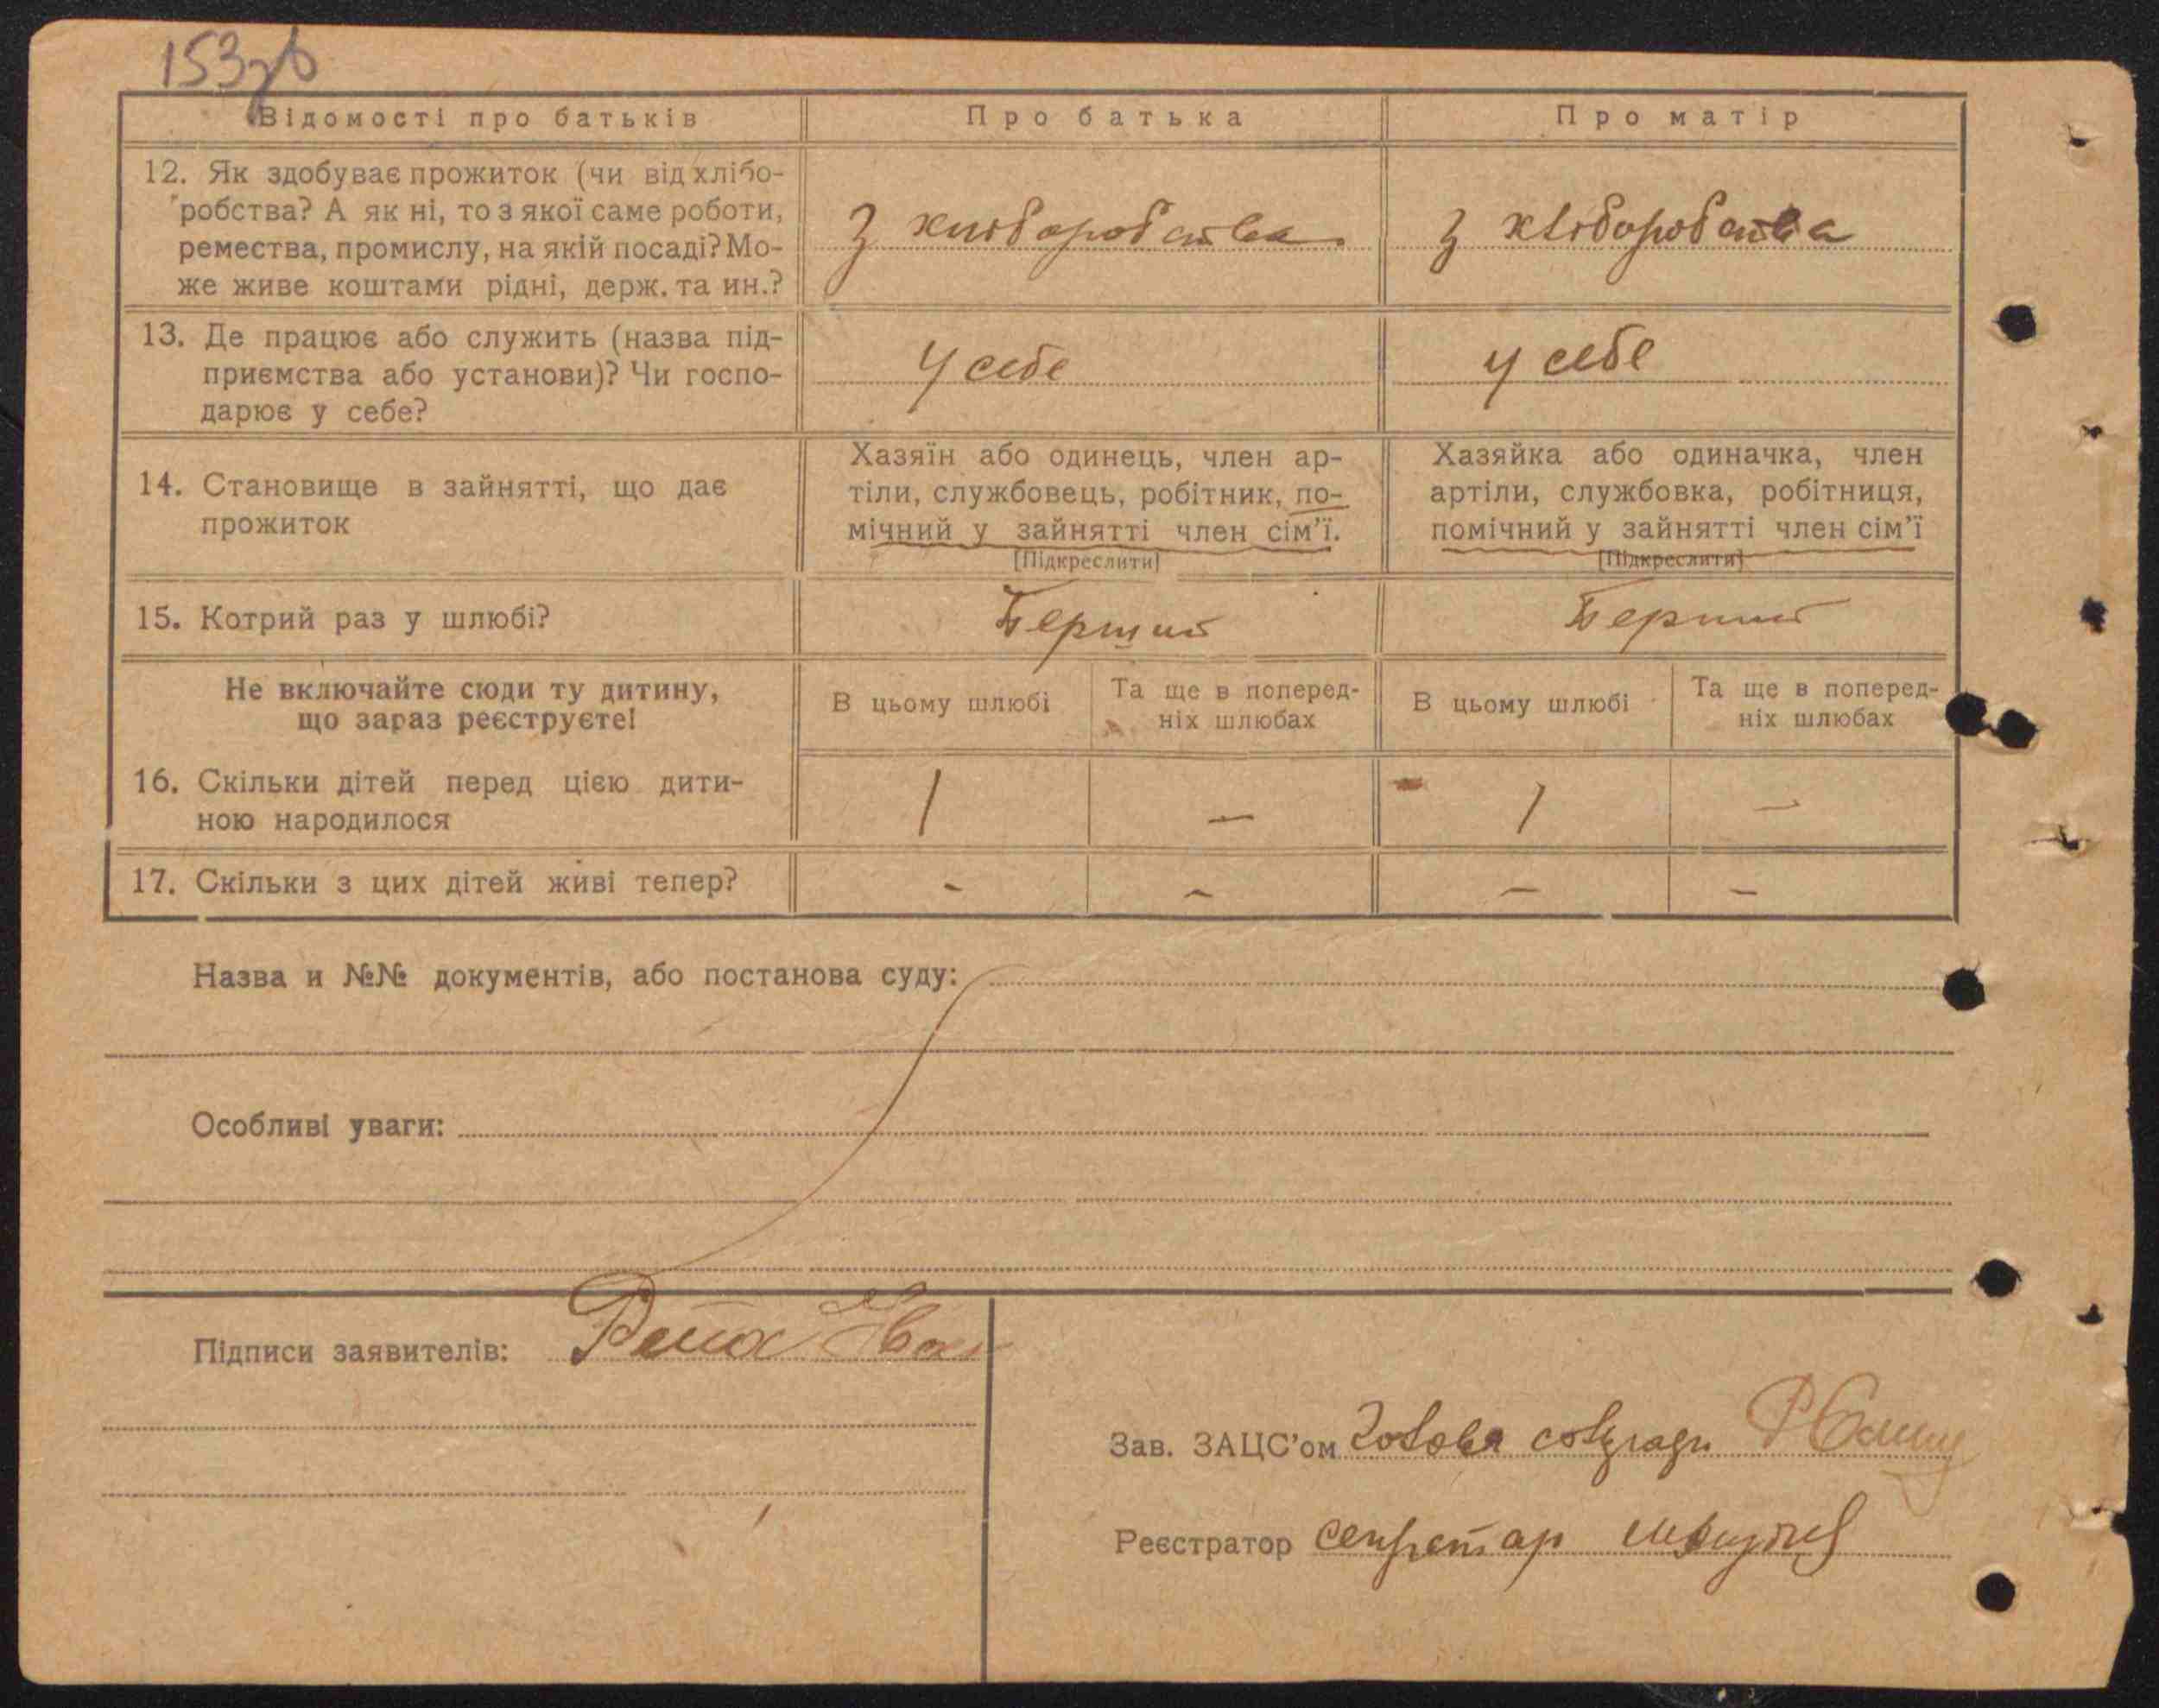 153зв
Відомості про батьків
Про батька
Про матір
12. Як здобуває прожиток (чи від хлібо-
робства? А як ні, то з якої саме роботи,
ремества, промислу, на якій посаді? Мо-
же живе коштами рідні, держ. та ин.?
З хліборобства
З хліборобства
13. Де працює або служить (назва під-
приємства або установи)? Чи госпо-
дарює у себе?
У себе
У себе
14. Становище в зайнятті, що дає
прожиток
Хазяїн або одинець, член ар-
тіли, службовець, робітник, по-
мічний у зайнятті член сім'ї.
[Підкреслити]
Хазяйка або одиначка, член
артіли, службовка, робітниця,
помічний у зайнятті член сім'ї
[Підкреслити]
15. Котрий раз у шлюбі?
Перший
Перший
Не включайте сюди ту дитину,
що зараз реєструєте!
В цьому шлюбі
Та ще в поперед-
ніх шлюбах
В цьому шлюбі
Та ще в поперед-
ніх шлюбах
16. Скільки дітей перед цією дити-
ною народилося
1
—
1
—
17. Скільки з цих дітей живі тепер?
-
-
-
-
Назва и №№ документів, або постанова суду:
Особливі уваги:
Підписи заявителів: Іван
Зав. ЗАЦС'ом Голова сільради
Реєстратор секретар